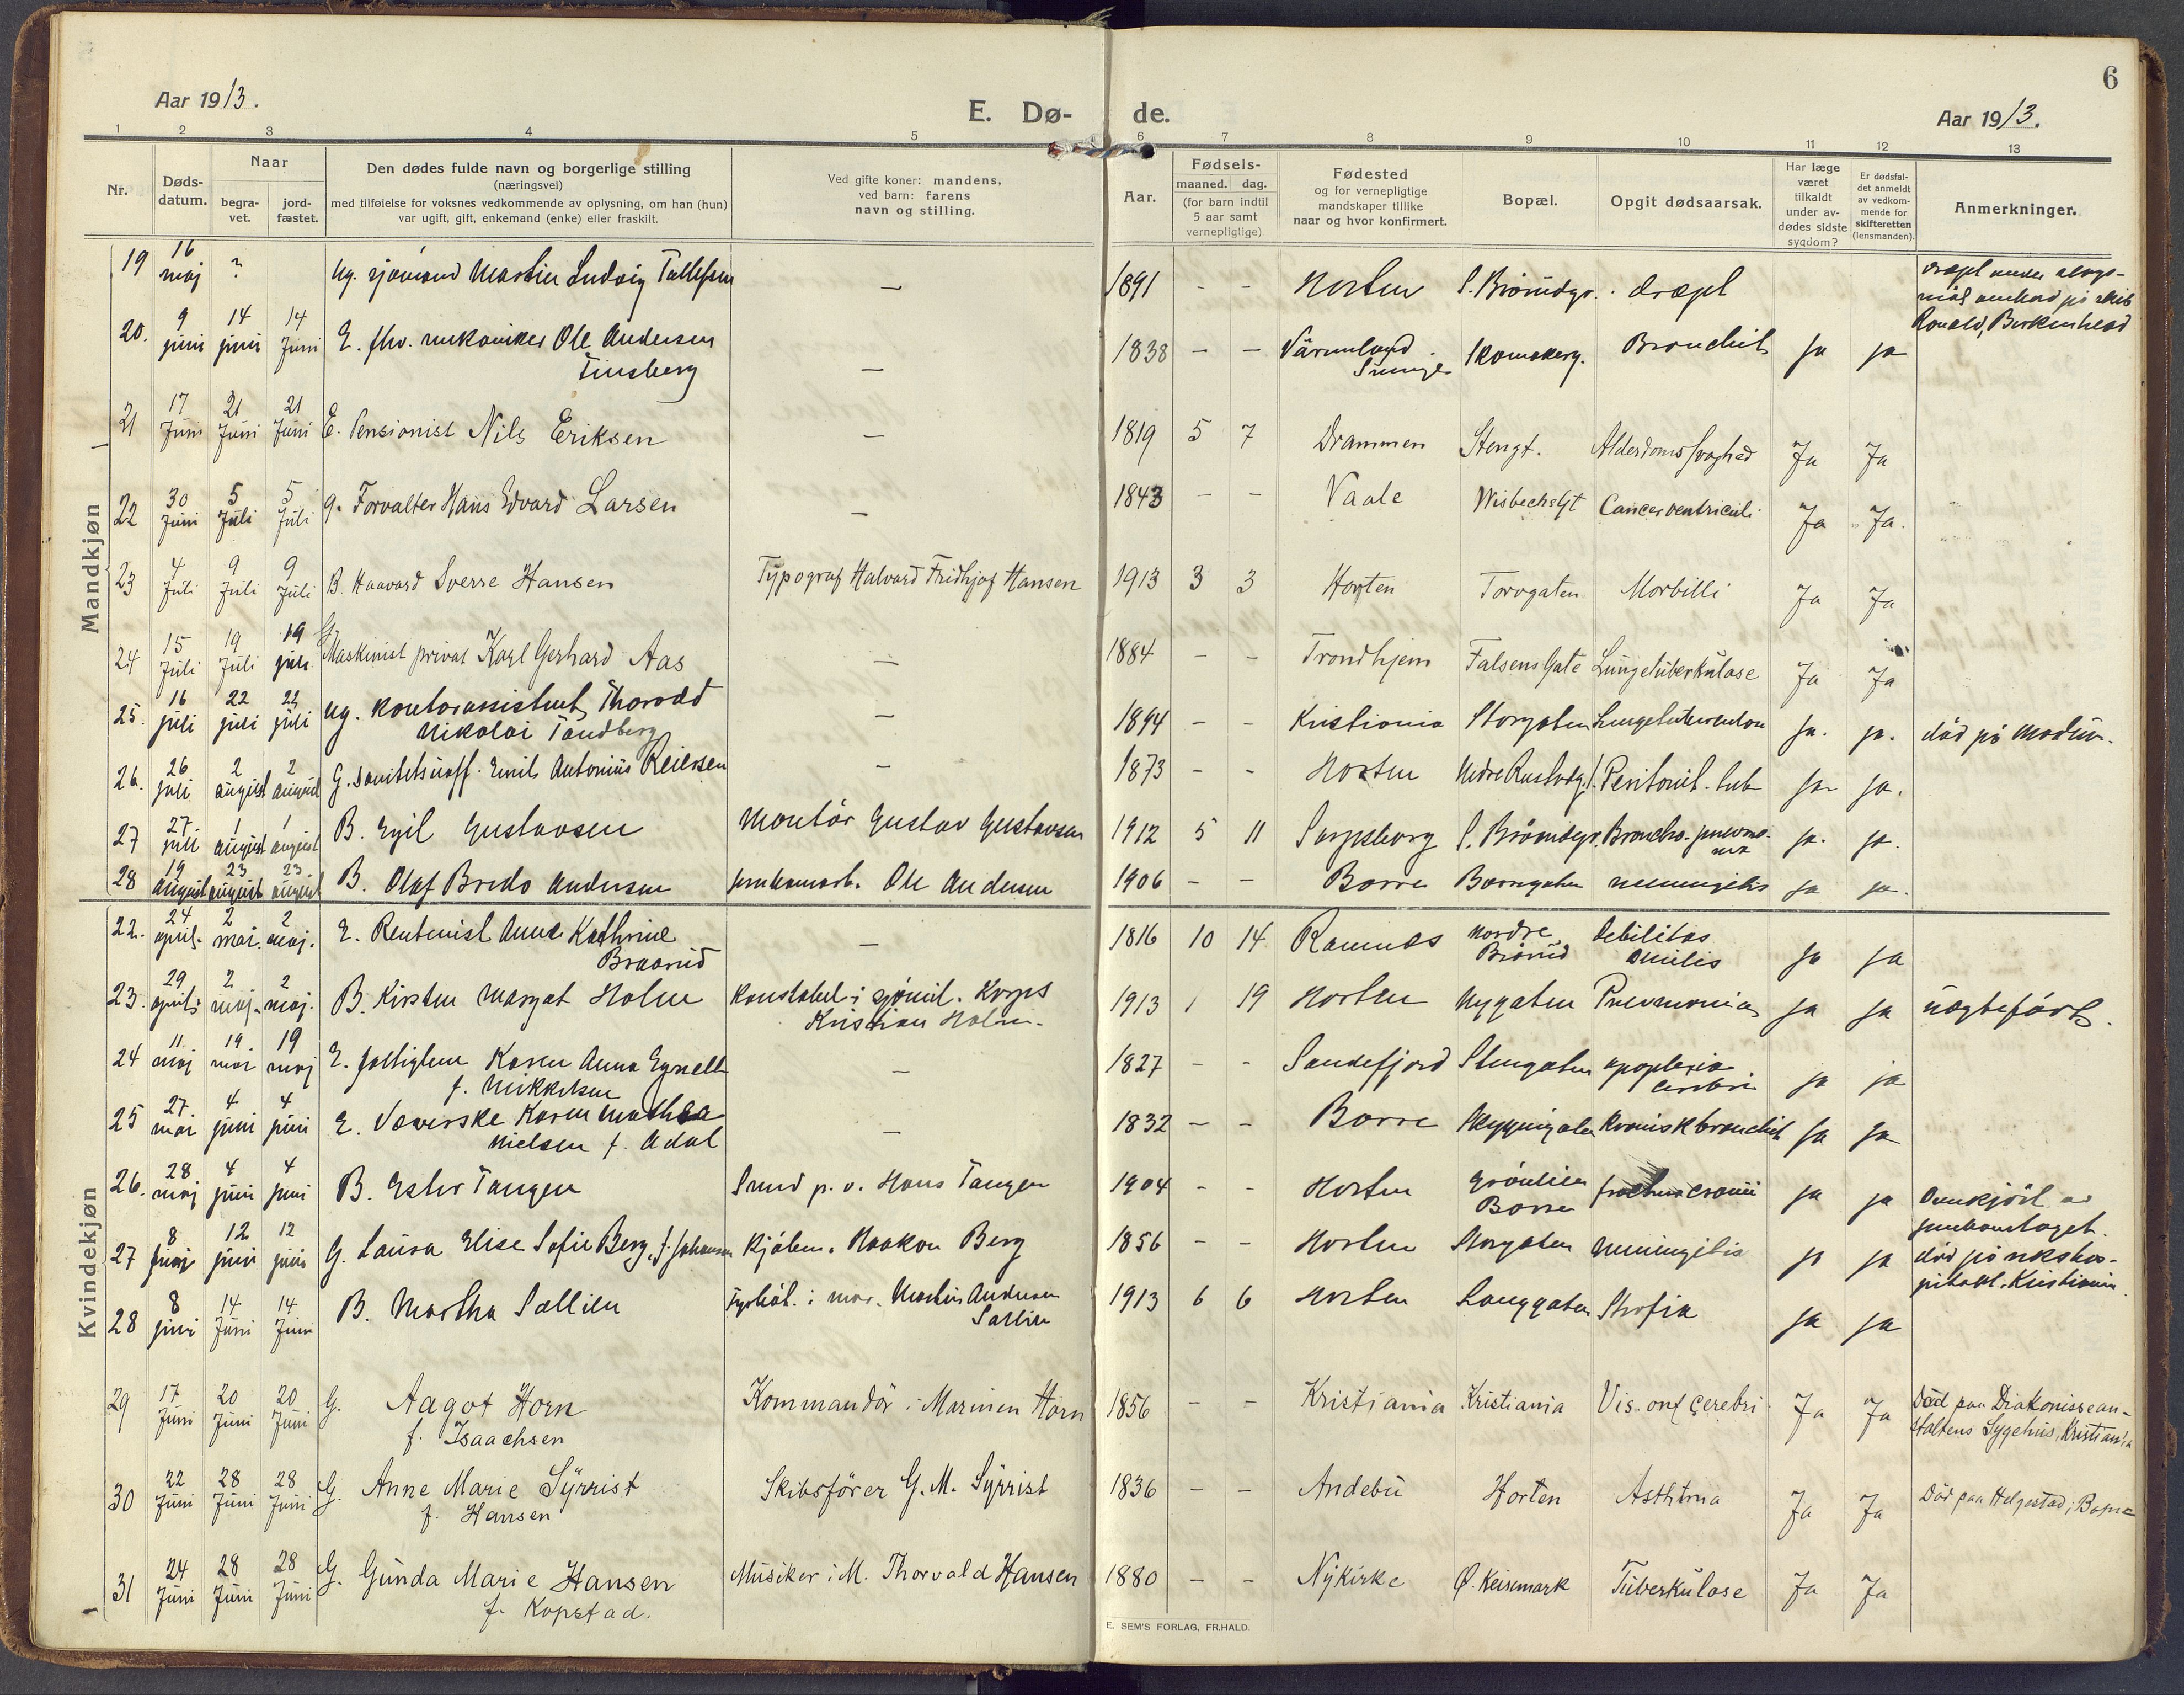 6
Aar 1913.
E. Dø- de.
Aar 1913.
1 2 3 4 5 6 7 8 9 10 11 12 13
Nr.
Døds-
datum.
Naar
begra-
vet.
jord-
fæstet.
Den dødes fulde navn og borgerlige stilling
(næringsvei)
med tilføielse for voksnes vedkommende av oplysning, om han (hun)
var ugift, gift, enkemand (enke) eller fraskilt.
Ved gifte koner: mandens,
ved barn: farens
navn og stilling.
Aar.
Fødsels-
maaned. dag.
(for barn indtil
5 aar samt
vernepligtige)
Fødested
og for vernepligtige
mandskaper tillike
naar og hvor konfirmert.
Bopæl.
Opgit dødsaarsak.
Har læge
været
tilkaldt
under av-
dødes sidste
sygdom?
Er dødsfal-
det anmeldt
av vedkom-
mende for
skifteretten
(lensmanden).
Anmerkninger.
Mandkjøn
19 16 maj ? ug. sjømand Martin Ludvig Tollefsen — 1891 - - Horten S. Brårudgt. dræpt dræpt under slags-
mål ombord på skib
Ronald, Birkenhead
20. 9 juni 14 juni 14 Juni E. fhv. mekaniker Ole Andersen
Tinsberg — 1838 - - Värmland Sverige Skomakerg. Bronchit ja ja
21 17 Juni 21 Juni 21 Juni E. Pensionist Nils Eriksen — 1819 5 7 Drammen Stengt. Alderdomssvaghed Ja Ja
22 30 Juni 5 Juli 5 Juli g. Forvalter Hans Edvard Larsen — 1843 - - Vaale Wisbechsgt Cancer ventriculi Ja Ja.
23 4 Juli 9 Juli 9 Juli B. Haavard Sverre Hansen Typograf Halvard Fridhjof Hansen 1913 3 3 Horten Torvgaten Morbilli Ja Ja
24 15 Juli 19 Juli 19 juli G. Maskinist privat Karl Gerhard Aas — 1884 - - Trondhjem Falsens Gate Lungetuberkulose Ja Ja
25. 16 juli 22 juli 22 juli ug. kontorassistent Thorodd
Nikolai Tandberg — 1894 - - Kristiania Storgaten Lungetuberculose ja. ja. död på Modum.
26. 26 juli 2 august 2 august G. sanitetsuoff. Emil Antonius Reiersen — 1873 - - Horten Nedre Rustadg. Peritonit. tub ja ja.
27 27 juli 1 august 1 august B. Egil Gustavsen Montör Gustav Gustavsen 1912 5 11 Sarpsborg S. Brårudgt. Broncho-pneumo-
nia ja. ja.
28 19 august 23 august 23 august B. Olaf Bredo Andersen jernbanearb. Ole Andersen 1906 - - Borre Borregaten meningitis ja ja.
Kvindekjøn
22. 24 april. 2 mai. 2 maj. E. Rentenist Anne Kathrine
Braarud — 1816 10 14 Ramnes Nordre
Brårud Debilitas
senilis ja ja
23. 29 april 2 maj. 2 maj. B. Kirsten Margot Holm Konstabel i sjömil. Korps
Kristian Holm. 1913 1 19 Horten Nygaten Pneumonia ja ja uægtefödt.
24 11. maj 19. mai 19 maj E. fattiglem Karen Anna Egnell
f. Mikkelsen — 1827 - - Sandefjord Stengaten apoplexia
cerebri ja ja
25 27. mai 4 juni 4 juni E. Væverske Karen Mathea
Nielsen f. Adal — 1832 - - Borre Skyggegaten Kronisk bronchit ja ja
26. 28 maj 4 juni 4 juni B. Ester Tangen Smed p. v. Hans Tangen 1904 - - Horten Grönlien
Borre fractura cranii ja ja Overkjört av
jernbanetoget.
27 8 juni 12 juni 12 juni G. Laura Elise Sofie Berg, f. Johansen Kjölem. Haakon Berg 1856 - - Horten Storgaten Meningitis ja ja död på rikshos-
pitalet. Kristiania.
28 8 juni 14 Juni 14 Juni B. Martha Sællien fyrböt. i mar. Martin Andersen
Sællien 1913 6 6 Horten Langgaten Atrofia ja ja
29 17 Juni 20 Juni 20 Juni G. Aagot Horn
f. Isaachsen Kommandör i Marinen Horn 1856 - - Kristiania Kristiania Vis. org cerebri Ja Ja Död paa Diakonissean-
staltens Sygehus, Kristiania
30 22 Juni 28 Juni 28 Juni G. Anne Marie Syrrist
f. Hansen Skibsförer G. M. Syrrist 1836 - - Andebu Horten Asthma Ja Ja Död paa Helgestad i Borre
31 24 Juni 28 Juni 28 Juni G. Gunda Marie Hansen
f. Kopstad. Musiker i M. Thorvald Hansen 1880 - - Nykirke Ø. Keisemark Tuberkulose Ja Ja
E. SEM'S FORLAG, FR.HALD.